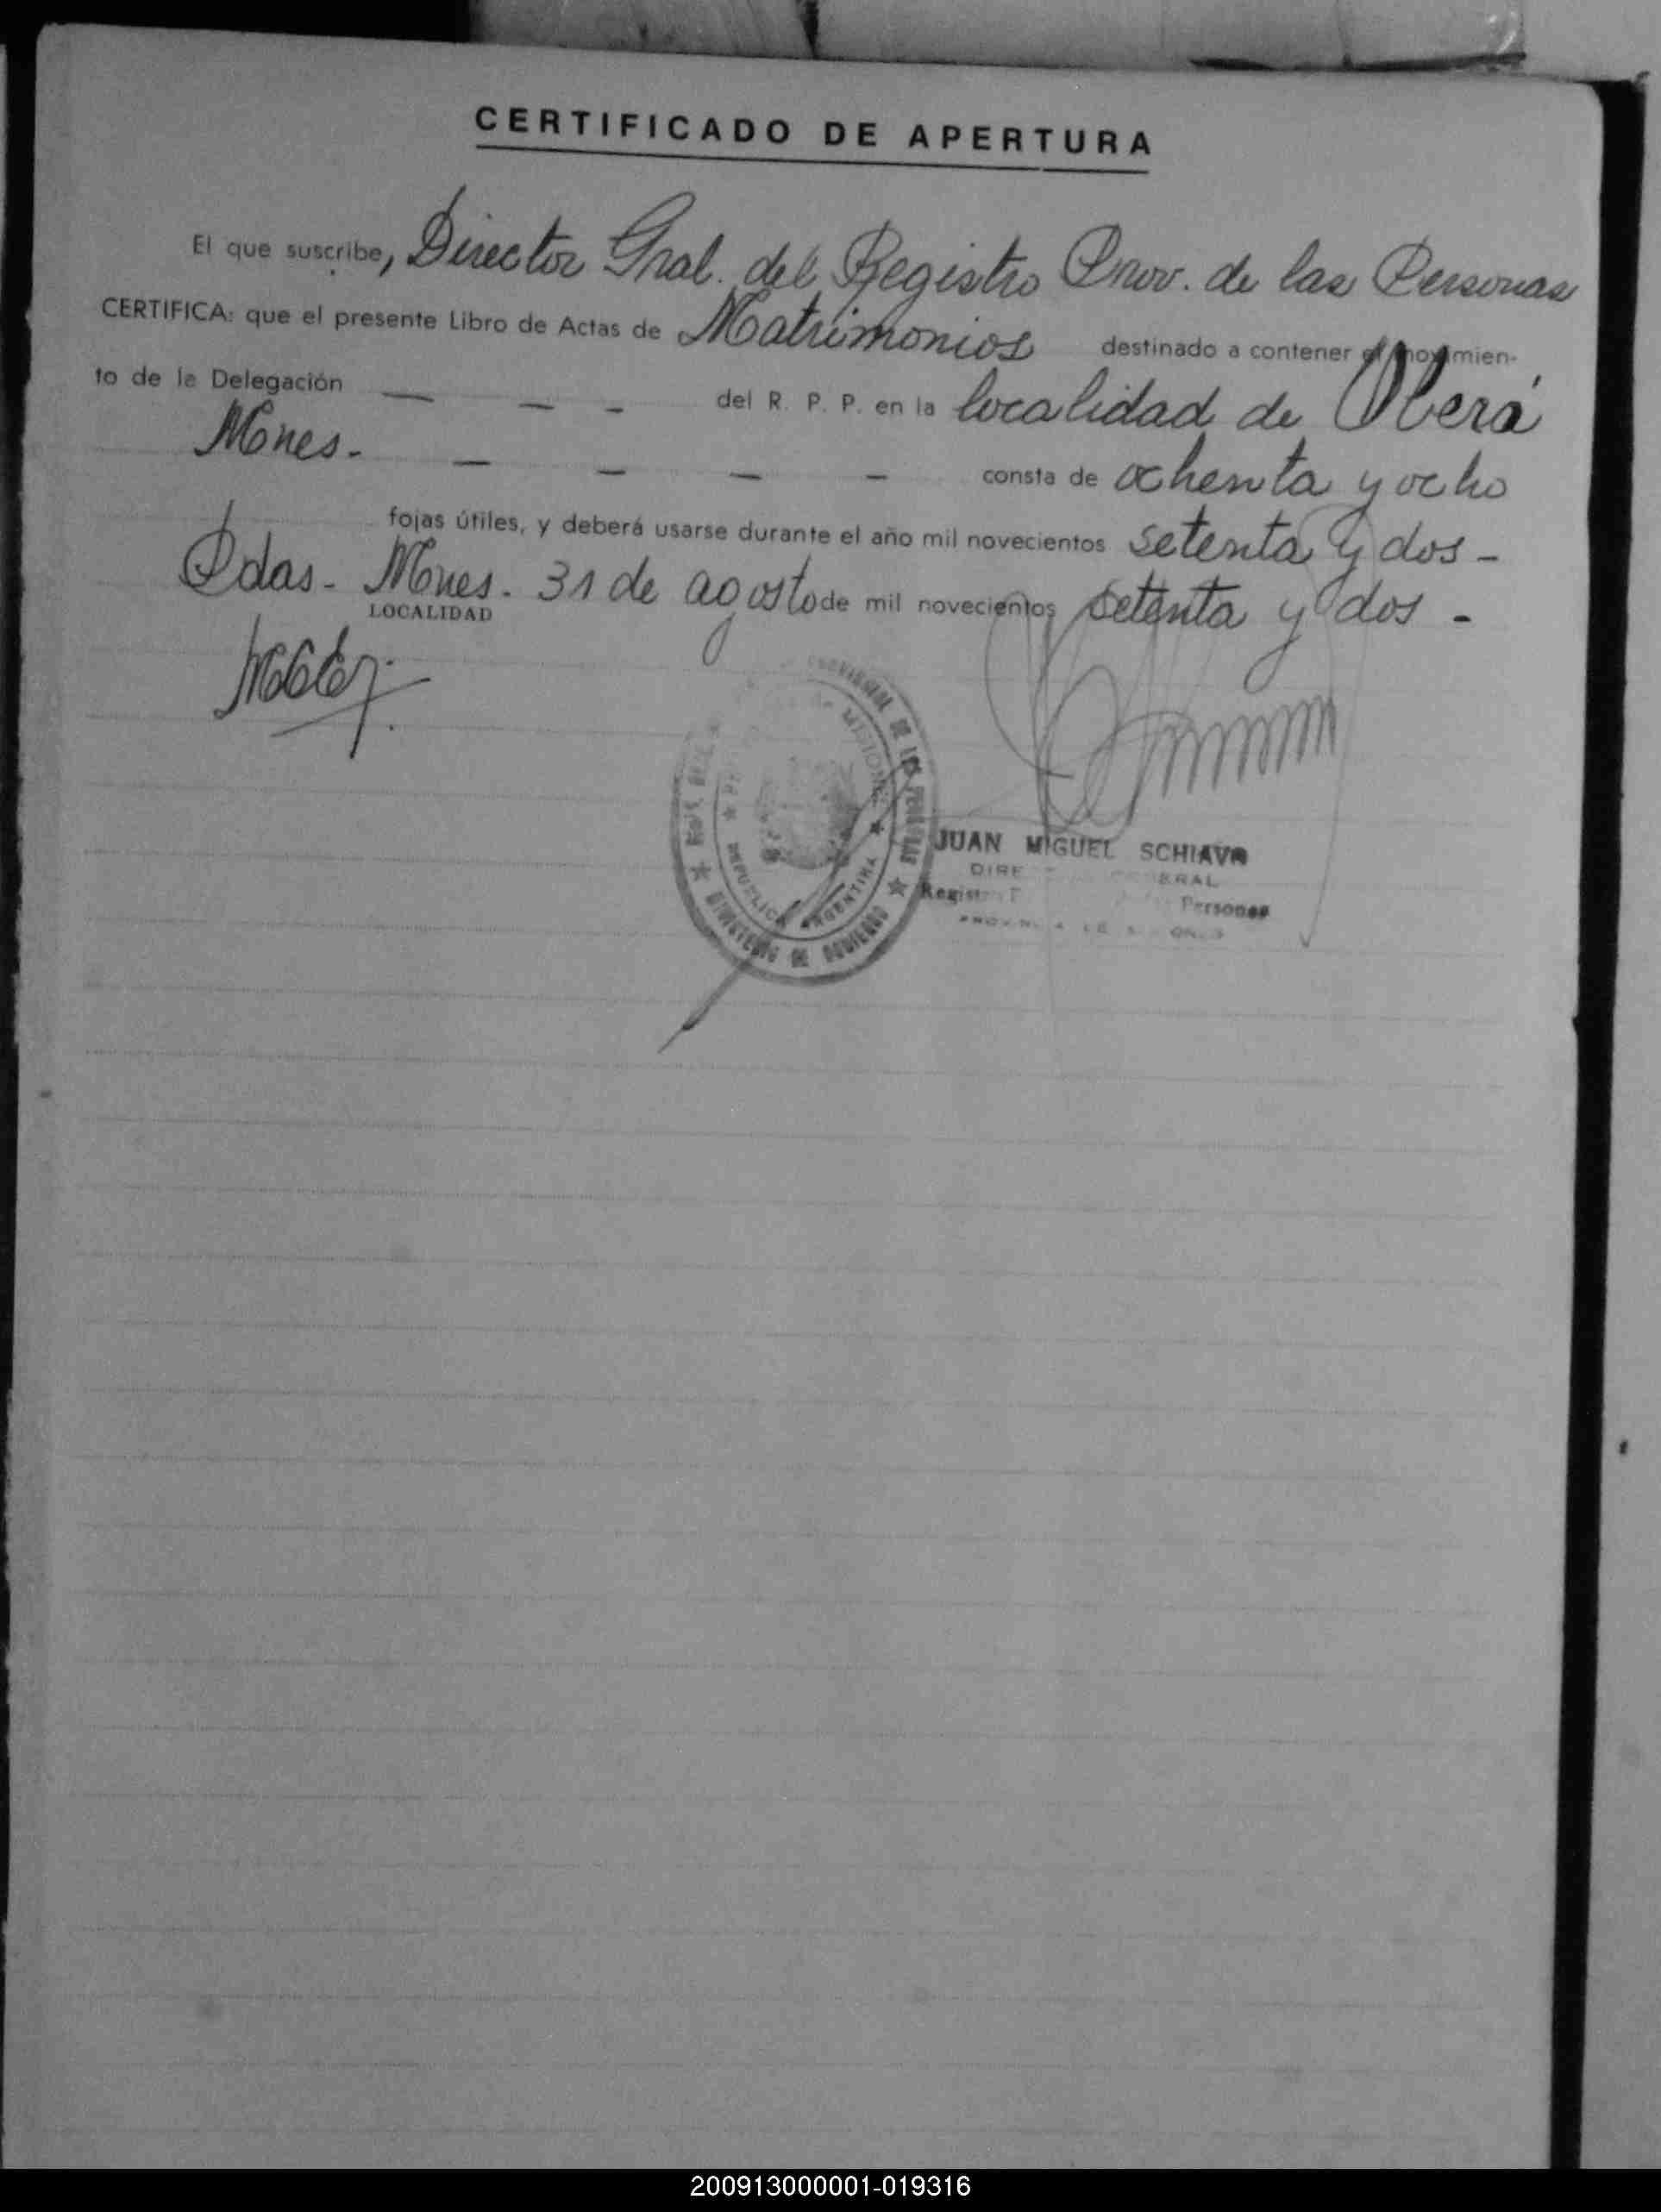 CERTIFICADO DE APERTURA
El que suscribe, Director Gral. del Registro Prov. de las Personas
CERTIFICA: que el presente Libro de Actas de Matrimonios destinado a contener el movimien-
to de la Delegación — — - del R. P. P. en la localidad de Oberá
Mones. — — — — consta de ochenta y ocho
fojas útiles, y deberá usarse durante el año mil novecientos setenta y dos -
Pdas. Mones. 31 de agosto de mil novecientos setenta y dos -
LOCALIDAD
PROVINCIAL DE LAS PERSONAS
MISIONES
REPUBLICA ARGENTINA
MINISTERIO DE GOBIERNO
JUAN MIGUEL SCHIAVA
DIRE ERAL
Regist Personas
200913000001-019316